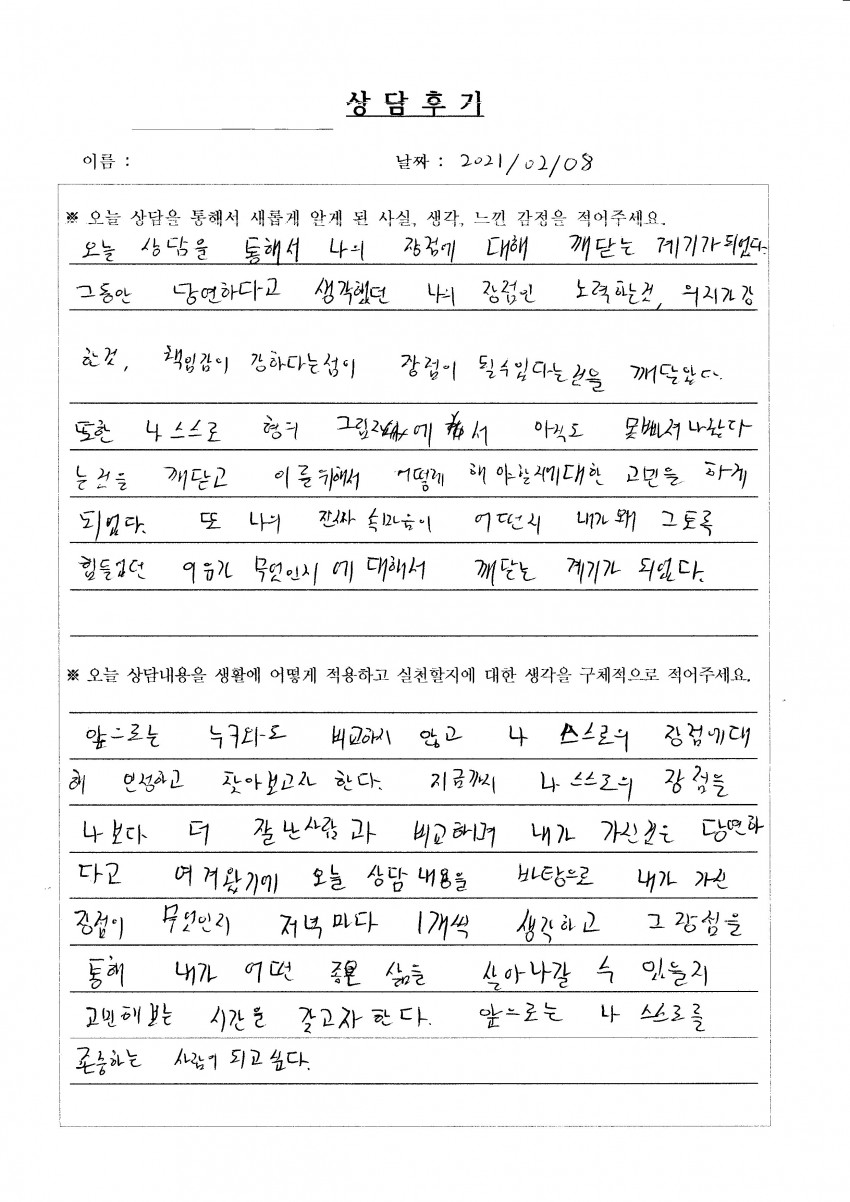 상담후기
이름 : 날짜 : 2021/02/08
※ 오늘 상담을 통해서 새롭게 알게 된 사실, 생각, 느낀 감정을 적어주세요.
오늘 상담을 통해서 나의 장점에 대해 깨닫는 계기가 되었다.
그동안 당연하다고 생각했던 나의 장점인 노력하는것, 의지가 강
한것, 책임감이 강하다는점이 장점이 될수있다는것을 깨달았다.
또한 나 스스로 형의 그림자에 서 아직도 못빠져나왔다
는것을 깨닫고 이를위해서 어떻게 해야할지에대한 고민을 하게
되었다. 또 나의 진짜 속마음이 어떤지 내가 왜 그토록
힘들었던 이유가 무엇인지 에 대해서 깨닫는 계기가 되었다.
※ 오늘 상담내용을 생활에 어떻게 적용하고 실천할지에 대한 생각을 구체적으로 적어주세요.
앞으로는 누구와도 비교하지 않고 나 스스로의 장점에대
해 인정하고 찾아보고자 한다. 지금까지 나 스스로의 장점을
나보다 더 잘난사람과 비교하며 내가 가진것은 당연하
다고 여겨왔기에 오늘 상담내용을 바탕으로 내가 가진
장점이 무엇인지 저녁마다 1개씩 생각하고 그 장점을
통해 내가 어떤 좋은 삶을 살아나갈 수 있을지
고민해보는 시간을 갖고자한다. 앞으로는 나 스스로를
존중하는 사람이 되고싶다.